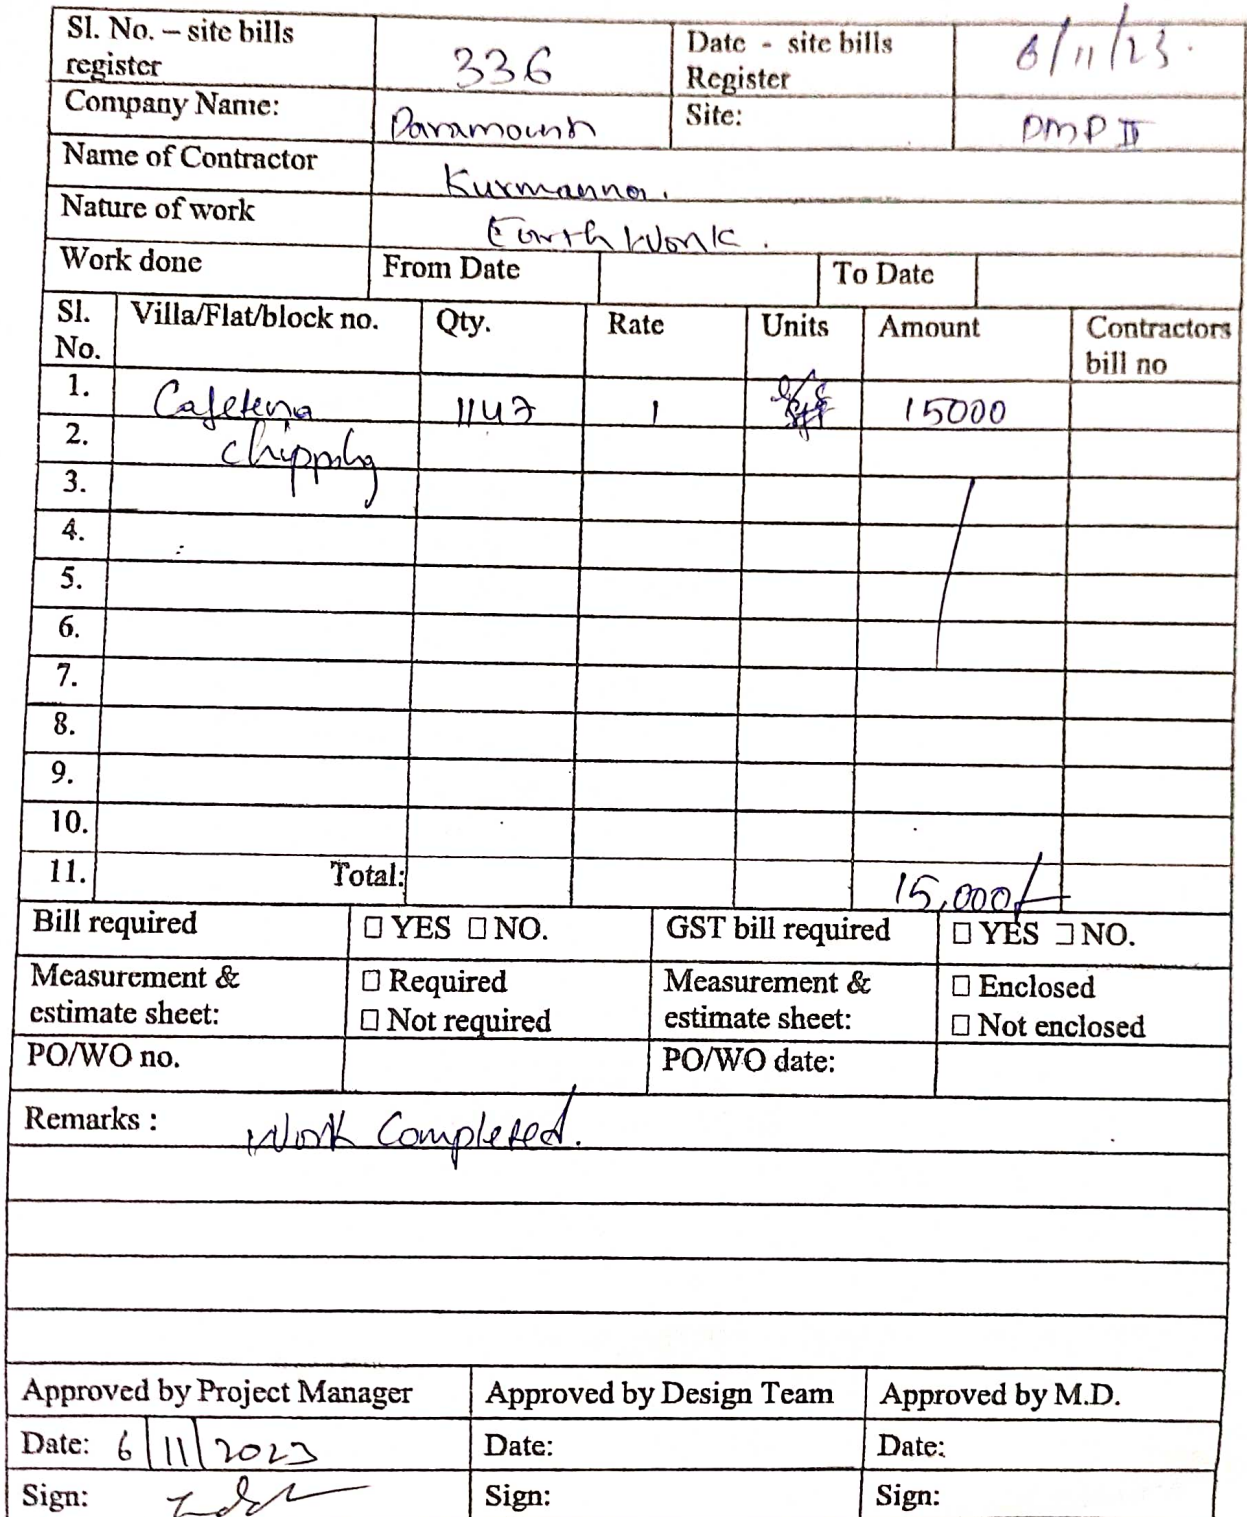 Sl. No. – site bills register 336 Date - site bills Register 6/11/23.
Company Name: Paramount Site: PMP II
Name of Contractor Kurmanna.
Nature of work Earth Work.
Work done From Date To Date
Sl. No. Villa/Flat/block no. Qty. Rate Units Amount Contractors bill no
1. Cafeteria 1147 1 15000
2. chipping
3.
4.
5.
6.
7.
8.
9.
10.
11. Total: 15,000/-
Bill required □ YES □ NO. GST bill required □ YES □ NO.
Measurement & estimate sheet: □ Required □ Not required Measurement & estimate sheet: □ Enclosed □ Not enclosed
PO/WO no. PO/WO date:
Remarks : Work Completed.
Approved by Project Manager Approved by Design Team Approved by M.D.
Date: 6/11/2023 Date: Date:
Sign: Sign: Sign: